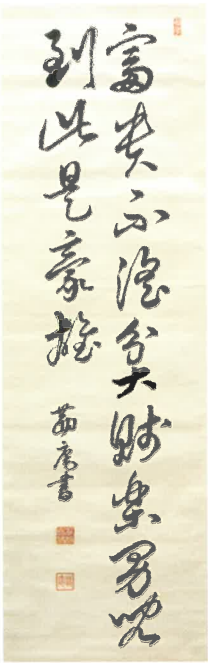 富貴不淫貧賤樂男兒
到此是豪雄
書